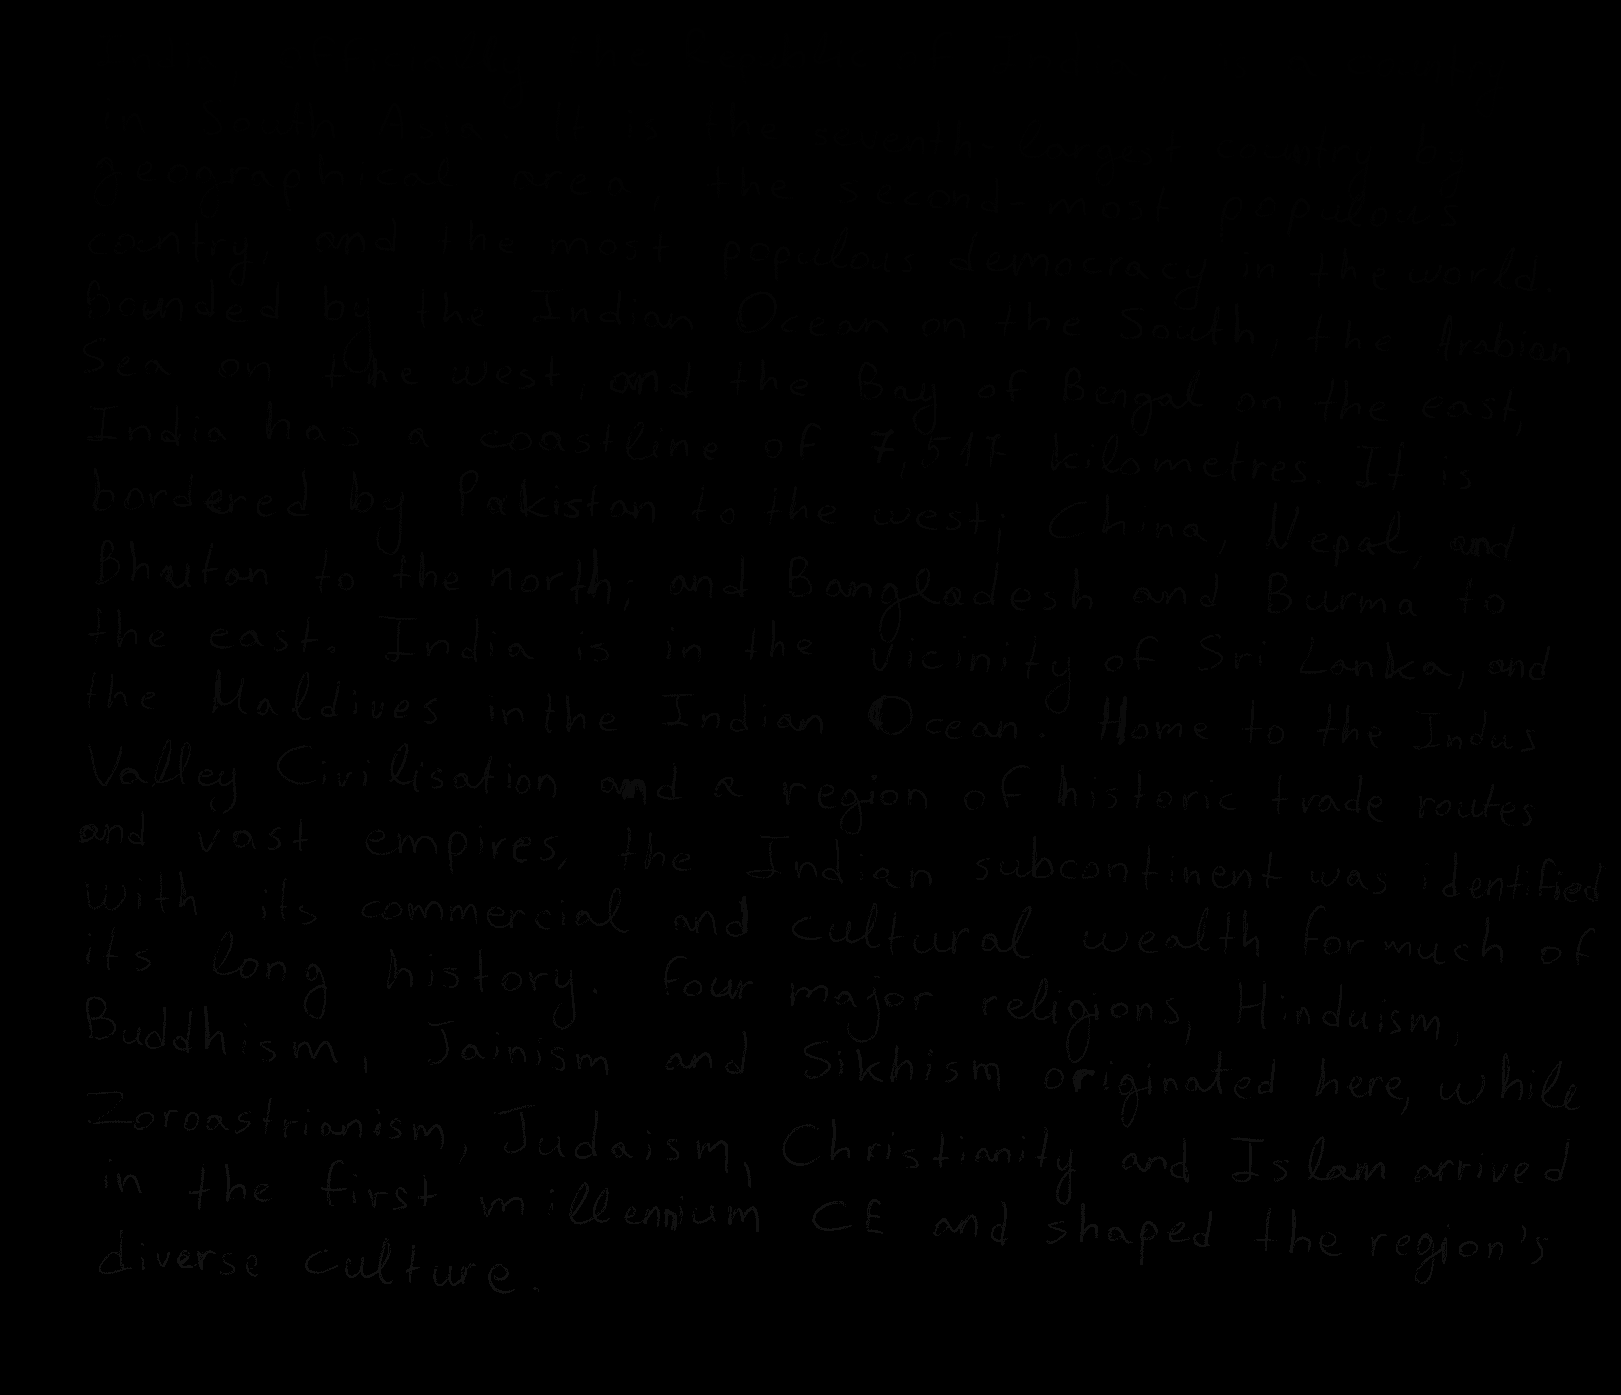 in South Asia. It is the seventh-largest country by
geographical area, the second-most populous
country, and the most populous democracy in the world.
Bounded by the Indian Ocean on the South, the Arabian
Sea on the west, and the Bay of Bengal on the east,
India has a coastline of 7,517 kilometres. It is
bordered by Pakistan to the west; China, Nepal, and
Bhutan to the north; and Bangladesh and Burma to
the east. India is in the vicinity of Sri Lanka, and
the Maldives in the Indian Ocean. Home to the Indus
Valley Civilisation and a region of historic trade routes
and vast empires, the Indian subcontinent was identified
with its commercial and cultural wealth for much of
its long history. Four major religions, Hinduism,
Buddhism, Jainism and Sikhism originated here, while
Zoroastrianism, Judaism, Christianity and Islam arrived
in the first millennium CE and shaped the region's
diverse culture.